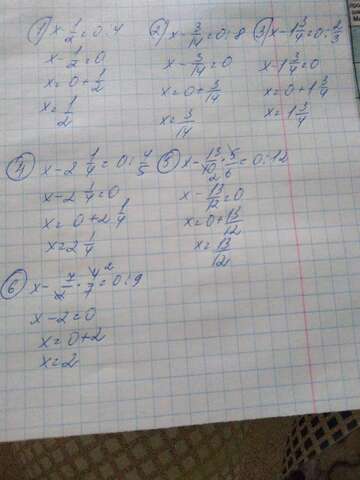 1) x - 1/2 = 0 : 4
x - 1/2 = 0
x = 0 + 1/2
x = 1/2
2) x - 3/14 = 0 : 8
x - 3/14 = 0
x = 0 + 3/14
x = 3/14
3) x - 1 3/4 = 0 : 2/3
x - 1 3/4 = 0
x = 0 + 1 3/4
x = 1 3/4
4) x - 2 1/4 = 0 : 4/5
x - 2 1/4 = 0
x = 0 + 2 1/4
x = 2 1/4
5) x - 13/10 2 · 5/6 = 0 : 12
x - 13/12 = 0
x = 0 + 13/12
x = 13/12
6) x - 7/2 · 4 2/7 = 0 : 9
x - 2 = 0
x = 0 + 2
x = 2